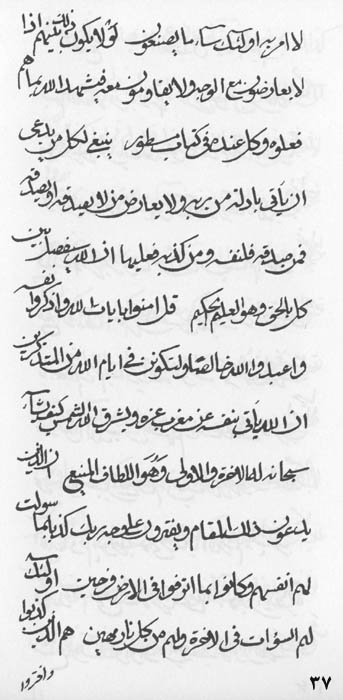 لا امر به اولئك ساء ما يصنعون لولا يكون ذلك بينهم اذا
لا يعارضون مع الوجه ولا يقاومون معه فيشهد الله بما هم
فعلوه وكل عنده في كتاب مسطور ينبغي لكل من يدعي
ان ياتي بادلة من ربه ولا يعارض من لا يصدقه او يصدقه
فمن صدقه فلنفسه ومن كذبه فعليها ان الله سيفصل بين
كل بالحق وهو العليم الحكيم قل امنوا بايات الله واذكروا نفسه
واعبدوا الله خالصا ولتكونن في ايام الله من المتذكرين
ان الله ياتي بنفسه عن مغرب عزه ويشرق الشمس كيف يشاء
سبحانه له الاخرة والاولى وهو اللطاف المنيع ان الذين
يدعون ذلك المقام ويفترون على وجه ربك كذبا بما سولت
لهم انفسهم وكانوا بما اترفوا في الارض فرحين اولئك
لهم السوات في الاخرة ولهم من كل نار مهين هم الذين كذبوا
وافتروا
٣٧